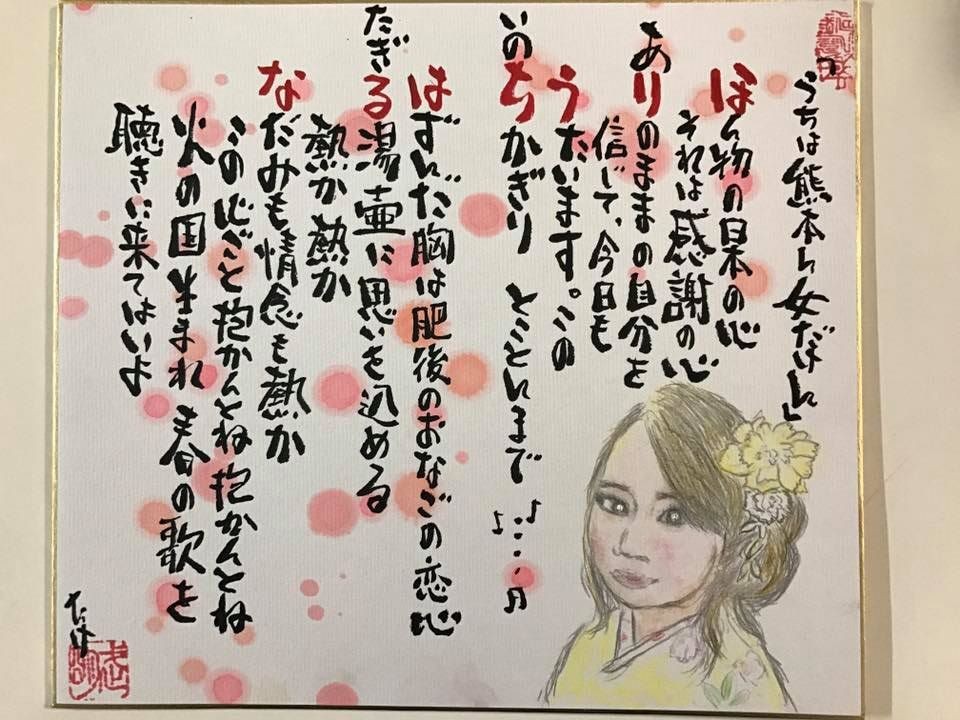 「うちは熊本ん女だけん」
ほん物の日本の心
それは感謝の心
ありのままの自分を
信じて、今日も
うたいます。この
いのちかぎり とことんまで…♪♪
はずんだ胸は肥後のおなごの恋心
たぎる湯壷に思いを込める
熱か熱か
なだみも情念も熱か
この心ごと抱かんとね抱かんとね
火の国生まれ 春の歌を
聴きに来てはいよ
たけ